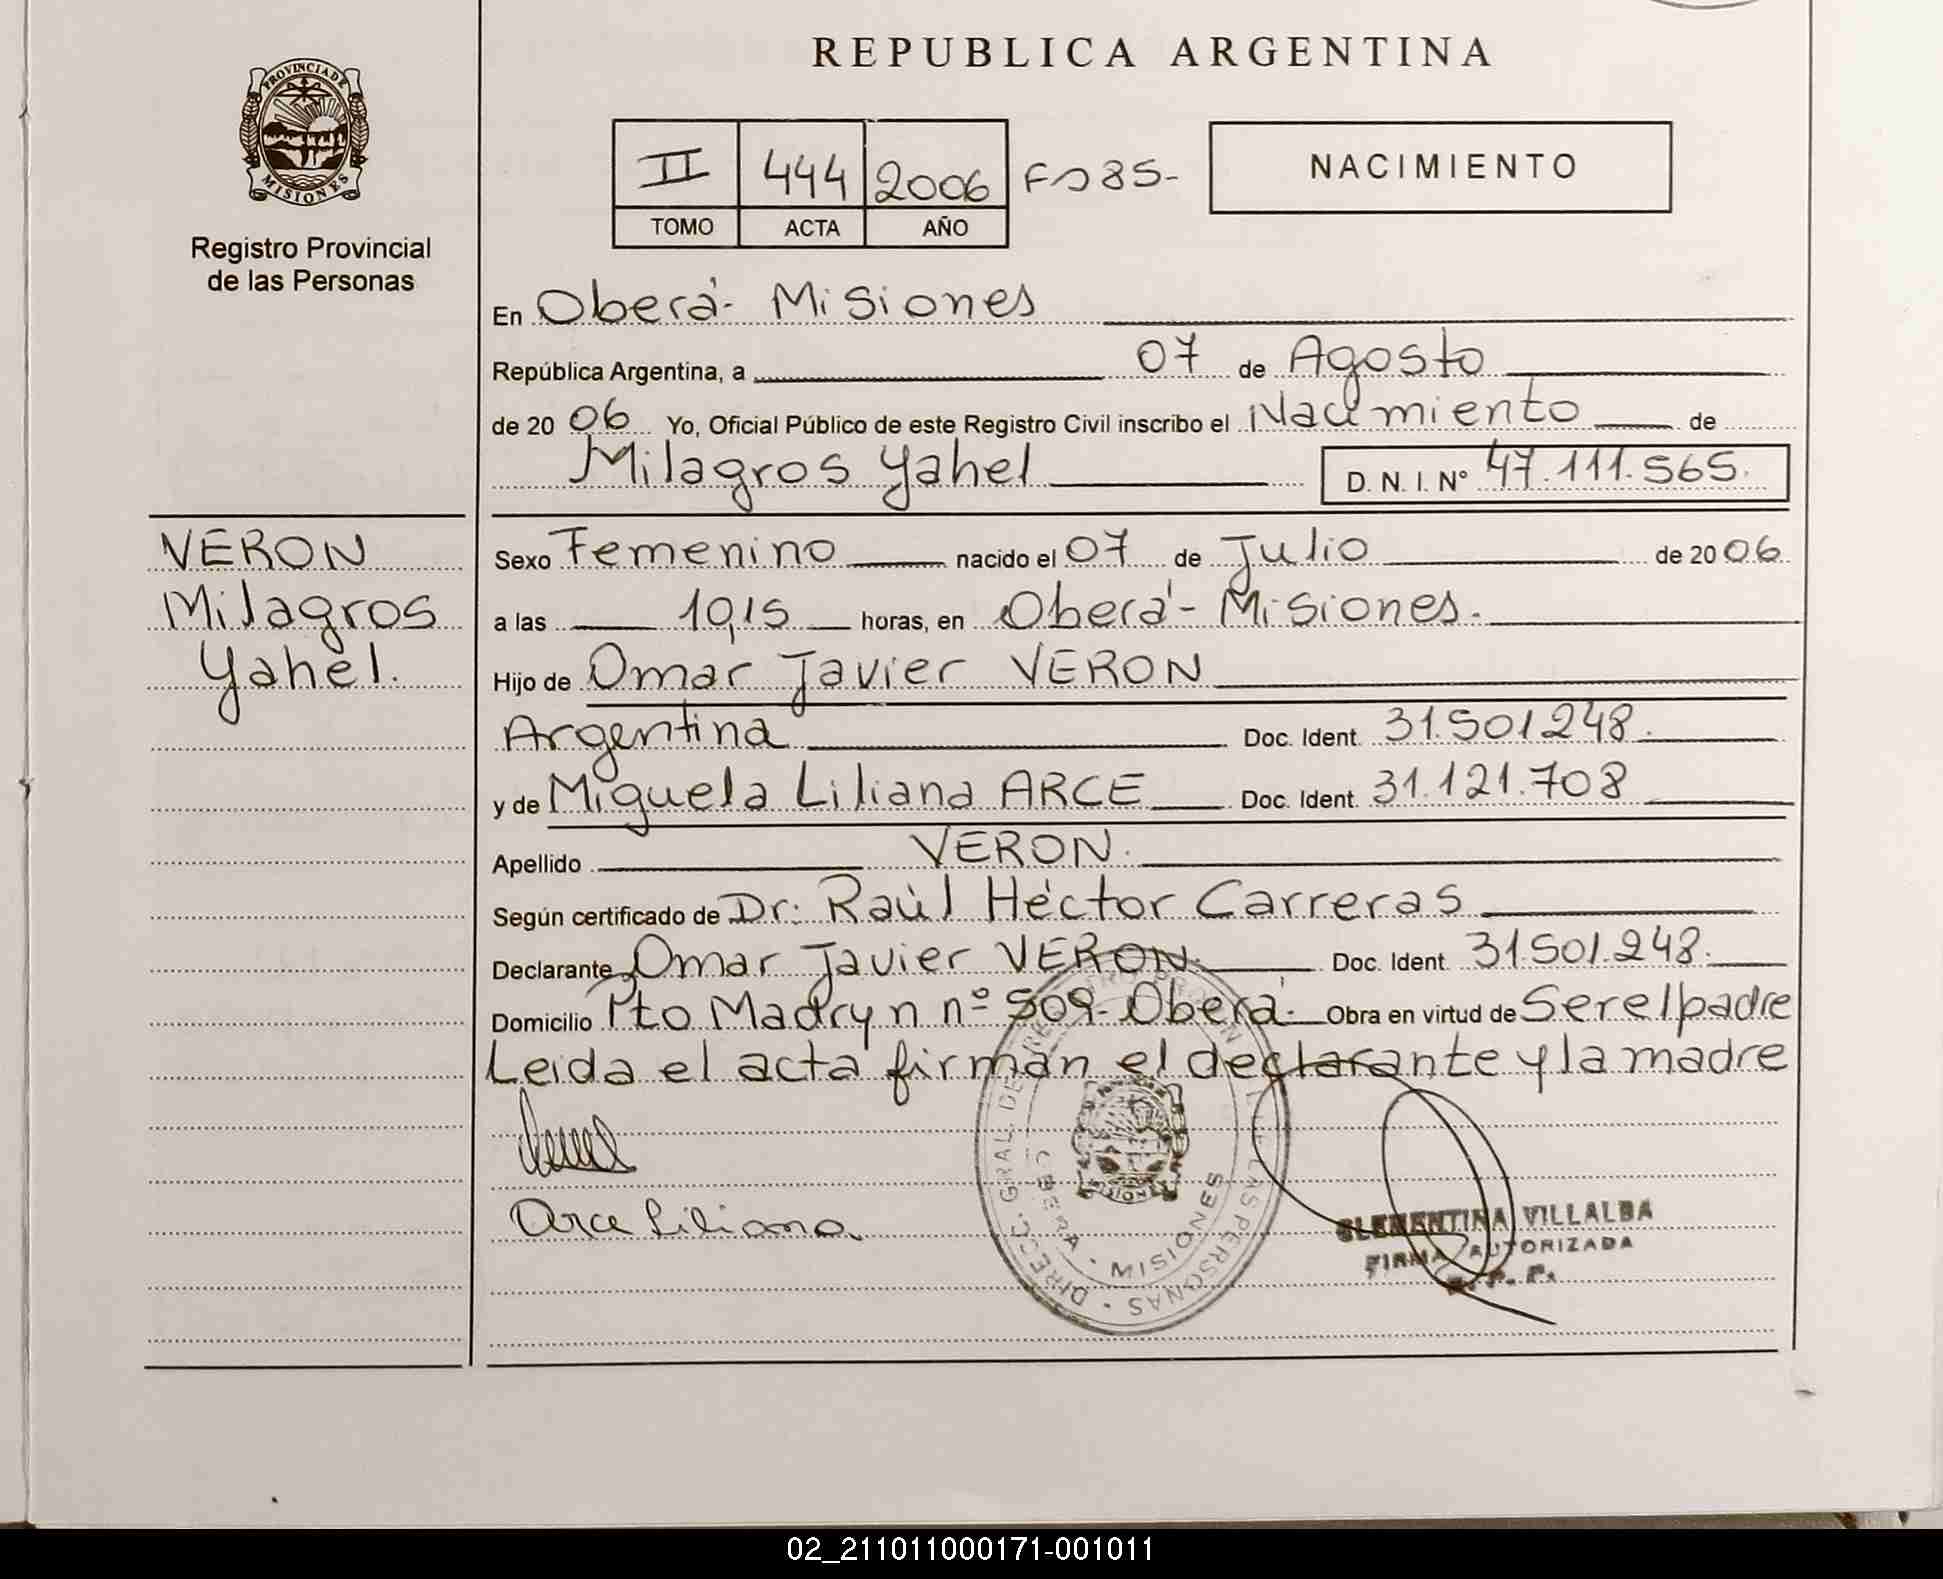 REPUBLICA ARGENTINA
PROVINCIA DE
MISIONES
Registro Provincial
de las Personas
II 444 2006 Fº 85-
TOMO ACTA AÑO
NACIMIENTO
En Oberá- Misiones
República Argentina, a 07 de Agosto
de 2006 Yo, Oficial Público de este Registro Civil inscribo el Nacimiento de
Milagros Yahel D. N. I. Nº 47.111.565.
VERON
Milagros
Yahel.
Sexo Femenino nacido el 07 de Julio de 2006
a las 10,15 horas, en Oberá- Misiones.
Hijo de Omar Javier VERON
Argentina Doc. Ident. 31.501.248.
y de Miguela Liliana ARCE Doc. Ident. 31.121.708
Apellido VERON.
Según certificado de Dr. Raúl Héctor Carreras
Declarante Omar Javier VERON. Doc. Ident. 31.501.248.
Domicilio Pto Madryn nº 509- Oberá. Obra en virtud de Ser el padre
Leida el acta firman el declarante y la madre
Arce Liliana.
DIRECC. GRAL. DE LAS PERSONAS
OBERA - MISIONES
MISIONES
CLEMENTINA VILLALBA
FIRMA AUTORIZADA
02_211011000171-001011